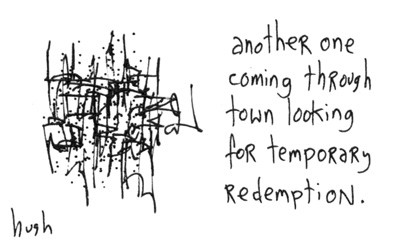 another one
coming through
town looking
for temporary
redemption.
hugh